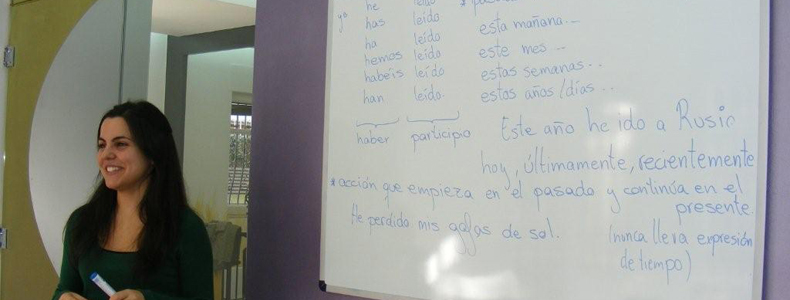 he leído
yo has leído esta mañana...
ha leído
hemos leído este mes...
habéis leído estas semanas...
han leído estos años/días...
haber participio Este año he ido a Rusia
hoy, últimamente, recientemente
* acción que empieza en el pasado y continúa en el
presente.
He perdido mis gafas de sol. (nunca lleva expresión
de tiempo)